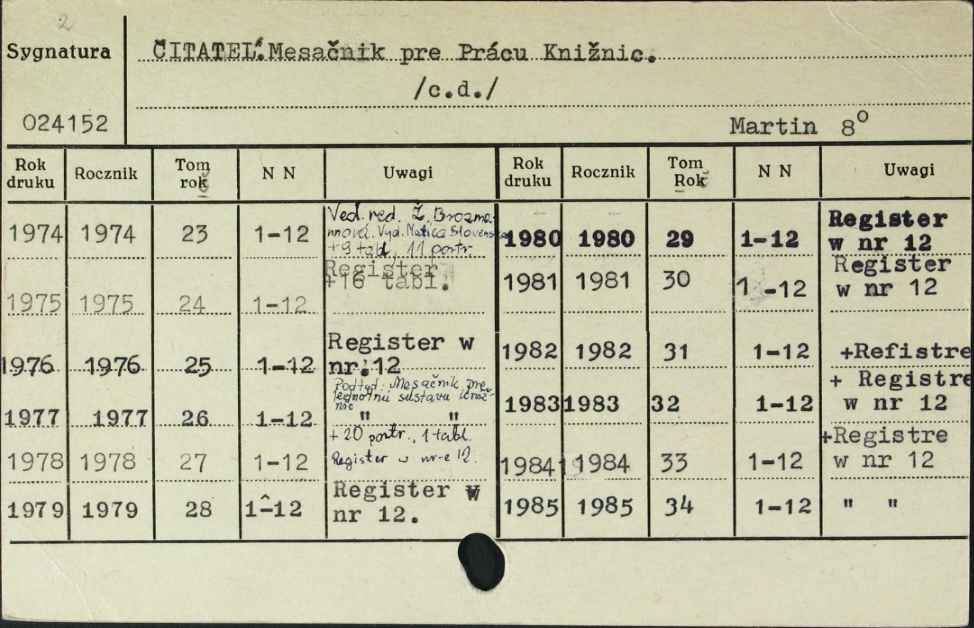 2
Sygnatura
ČITATEĽ.Mesačnik pre Prácu Knižnic.
/c.d./
024152
Martin 8º
Rok druku Rocznik Tom rok N N Uwagi Rok druku Rocznik Tom Rok N N Uwagi
1974 1974 23 1-12 Ved. red. Ž. Brozmannová. Vyd. Matica Slovenska +9 tabl, 11 portr.
1975 1975 24 1-12 Register +16 tabl.
1976 1976 25 1-12 Register w nr.12
1977 1977 26 1-12 Podtyt. Mesačnik pre jednotnú sústavu " "
+ 20 portr., 1 tabl.
1978 1978 27 1-12 Register w nr-e 12.
1979 1979 28 1-12 Register w nr 12.
1980 1980 29 1-12 Register w nr 12
1981 1981 30 1 -12 Register w nr 12
1982 1982 31 1-12 +Refistre
1983 1983 32 1-12 + Registre w nr 12
1984 1984 33 1-12 +Registre w nr 12
1985 1985 34 1-12 " "